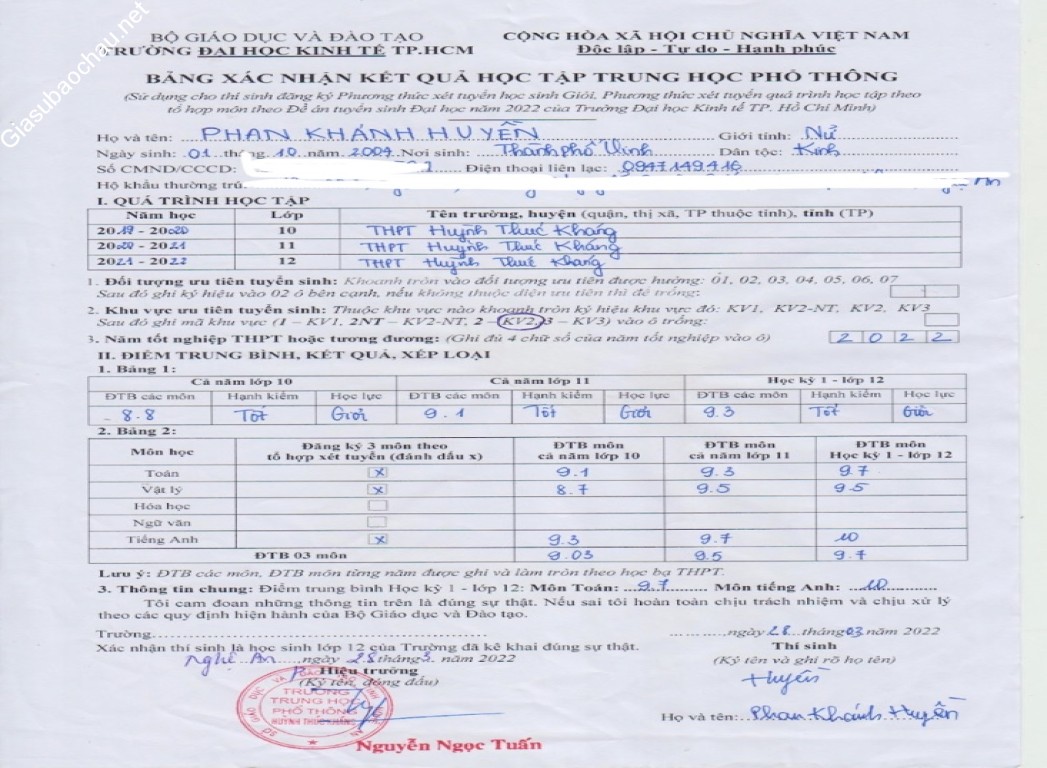 Giasubaochau.net
BỘ GIÁO DỤC VÀ ĐÀO TẠO CỘNG HÒA XÃ HỘI CHỦ NGHĨA VIỆT NAM
TRƯỜNG ĐẠI HỌC KINH TẾ TP.HCM Độc lập - Tự do - Hạnh phúc
BẢNG XÁC NHẬN KẾT QUẢ HỌC TẬP TRUNG HỌC PHỔ THÔNG
(Sử dụng cho thí sinh đăng ký Phương thức xét tuyển học sinh Giỏi, Phương thức xét tuyển quá trình học tập theo
tổ hợp môn theo Đề án tuyển sinh Đại học năm 2022 của Trường Đại học Kinh tế TP. Hồ Chí Minh)
Họ và tên: PHAN KHÁNH HUYỀN Giới tính: Nữ
Ngày sinh: 01 tháng 10 năm 2004 Nơi sinh: Thành phố Vinh Dân tộc: Kinh
Số CMND/CCCD: Điện thoại liên lạc: 0947149416
Hộ khẩu thường trú: An
I. QUÁ TRÌNH HỌC TẬP
Năm học Lớp Tên trường, huyện (quận, thị xã, TP thuộc tỉnh), tỉnh (TP)
2019 - 2020 10 THPT Huỳnh Thúc Kháng
2020 - 2021 11 THPT Huỳnh Thúc Kháng
2021 - 2022 12 THPT Huỳnh Thúc Kháng
1. Đối tượng ưu tiên tuyển sinh: Khoanh tròn vào đối tượng ưu tiên được hưởng: 01, 02, 03, 04, 05, 06, 07
Sau đó ghi ký hiệu vào 02 ô bên cạnh, nếu không thuộc diện ưu tiên thì để trống:
2. Khu vực ưu tiên tuyển sinh: Thuộc khu vực nào khoanh tròn ký hiệu khu vực đó: KV1, KV2-NT, KV2, KV3
Sau đó ghi mã khu vực (1 – KV1, 2NT – KV2-NT, 2 – KV2, 3 – KV3) vào ô trống:
3. Năm tốt nghiệp THPT hoặc tương đương: (Ghi đủ 4 chữ số của năm tốt nghiệp vào ô) 2 0 2 2
II. ĐIỂM TRUNG BÌNH, KẾT QUẢ, XẾP LOẠI
1. Bảng 1:
Cả năm lớp 10 Cả năm lớp 11 Học kỳ 1 - lớp 12
ĐTB các môn Hạnh kiểm Học lực ĐTB các môn Hạnh kiểm Học lực ĐTB các môn Hạnh kiểm Học lực
8.8 Tốt Giỏi 9.1 Tốt Giỏi 9.3 Tốt Giỏi
2. Bảng 2:
Môn học Đăng ký 3 môn theo tổ hợp xét tuyển (đánh dấu x) ĐTB môn cả năm lớp 10 ĐTB môn cả năm lớp 11 ĐTB môn Học kỳ 1 - lớp 12
Toán x 9.1 9.3 9.7
Vật lý x 8.7 9.5 9.5
Hóa học
Ngữ văn
Tiếng Anh x 9.3 9.7 10
ĐTB 03 môn 9.03 9.5 9.7
Lưu ý: ĐTB các môn, ĐTB môn từng năm được ghi và làm tròn theo học bạ THPT.
3. Thông tin chung: Điểm trung bình Học kỳ 1 - lớp 12: Môn Toán: 9.7 Môn tiếng Anh: 10
Tôi cam đoan những thông tin trên là đúng sự thật. Nếu sai tôi hoàn toàn chịu trách nhiệm và chịu xử lý
theo các quy định hiện hành của Bộ Giáo dục và Đào tạo.
Trường ngày 28 tháng 03 năm 2022
Xác nhận thí sinh là học sinh lớp 12 của Trường đã kê khai đúng sự thật. Thí sinh
Nghệ An, ngày 28 tháng 3 năm 2022 (Ký tên và ghi rõ họ tên)
Hiệu trưởng Huyền
(Ký tên, đóng dấu)
TRƯỜNG
TRUNG HỌC
PHỔ THÔNG
HUỲNH THÚC KHÁNG
Họ và tên: Phan Khánh Huyền
Nguyễn Ngọc Tuấn